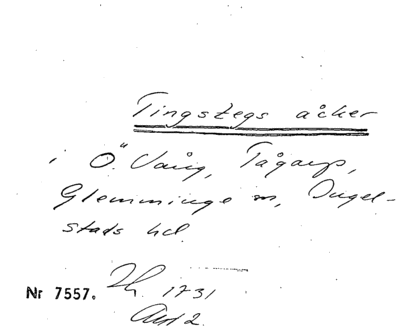 Tingstegs åcker
i Ö. Vång, Tågarp,
Glemminge sn, Ingel-
stads hd.
Nr 7557. Lh. 1731
Akt 2.